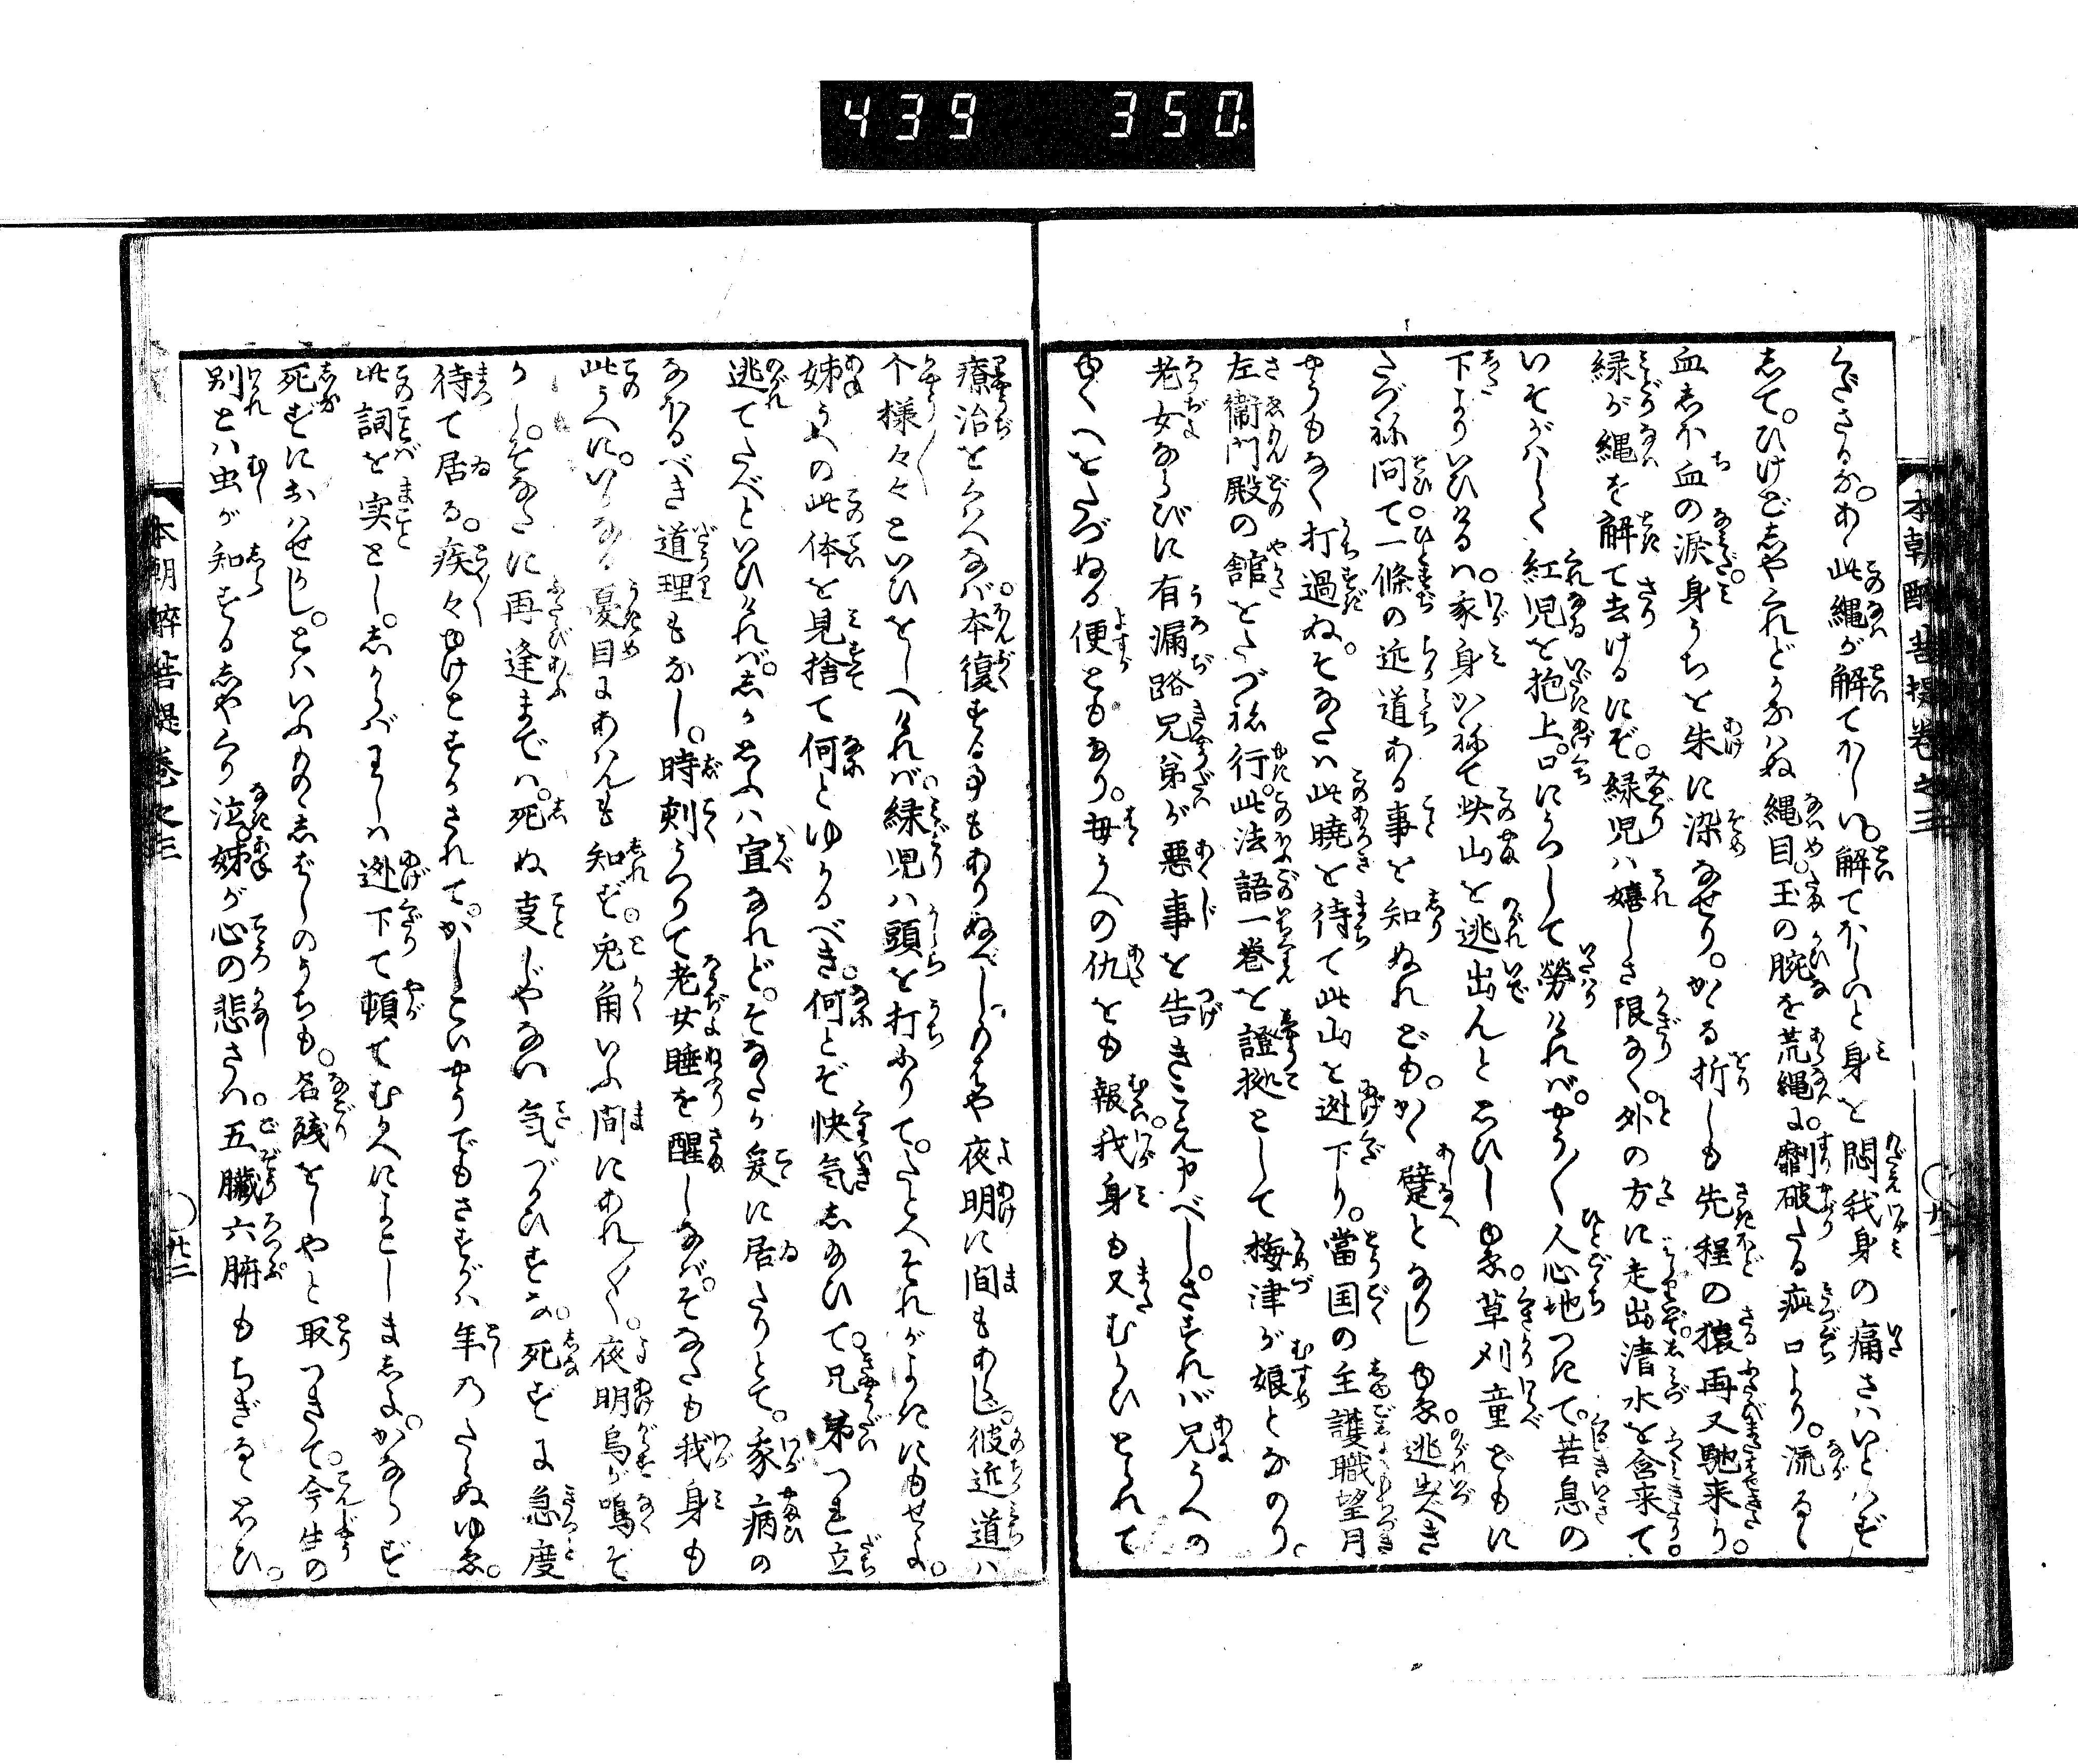 439 350
本朝酔菩提巻之三
くださるな。あゝ此縄が解てかしい。解てほしいと身を悶我身の痛さはいとはず
して。ひけどしやくれどかなはぬ縄目。玉の腕を荒縄に。劘破たる疵口より。流るゝ
血しほ血の涙身うちを朱に染なせり。かゝる折しも先程の猿再又馳来り。
緑が縄を解て去けるにぞ。緑児は嬉しさ限なく。外の方に走出清水を含来て。
いそがはしく紅児を抱上。口にうつして労はれば。やう〳〵人心地つきて。苦息の
下よりいひけるは。我身かねて此山を逃出んとおひしゆゑ。草刈童どもに
たづね問て。一條の近道ある事を知ぬれども。かく躄となりしゆゑ。逃出べき
やうもなく打過ぬ。そなたは此暁を待て此山を逃下り。當国の主護職望月
左衛門殿の舘をたづね行。此法語一巻を證拠として梅津が娘となのり。
老女ならびに有漏路兄弟が悪事を告きこえ申べし。さすれば兄うへの
ゆくへをたづぬる便ともあり。母うへの仇をも報。我身も又むかひとられて
療治をくはへなば。本復する事もありぬべし。もはや夜明に間もあらじ。彼近道は
个様々々といひをしへければ。緑児は頭を打ふりて。たとへそれがよきにもせよ。
姉うへの此体を見捨て何とゆかるべき。何とぞ快気しあひて。兄弟つれ立
逃てたべといひければ。しかおもふは宜なれど。そなたが爰に居たりとて。我病の
なほるべき道理もなし。時刻うつりて老女睡を醒しなば。そなたも我身も
此うへに。いかなる憂目にあはんも知ず。兎角いふ間にあれ〳〵。夜明烏が鳴ぞ
かし。そなたに再逢までは。死ぬ事じやない気づかひすな。死ずに急度
待て居る。疾々ゆけとすかされて。かしこいやうでもさすがは年のたらぬゆゑ。
此詞を実とし。しからばわしは逃下て頓てむかへにこしましよ。かならず
死ずにおはせかし。とはいふものゝしばしのうちも。名残をしやと取つきて。今生の
別とは虫が知するしやくり泣。姉が心の悲さは。五臓六腑もちぎるゝおもひ。
本朝酔菩提巻之三
廿二